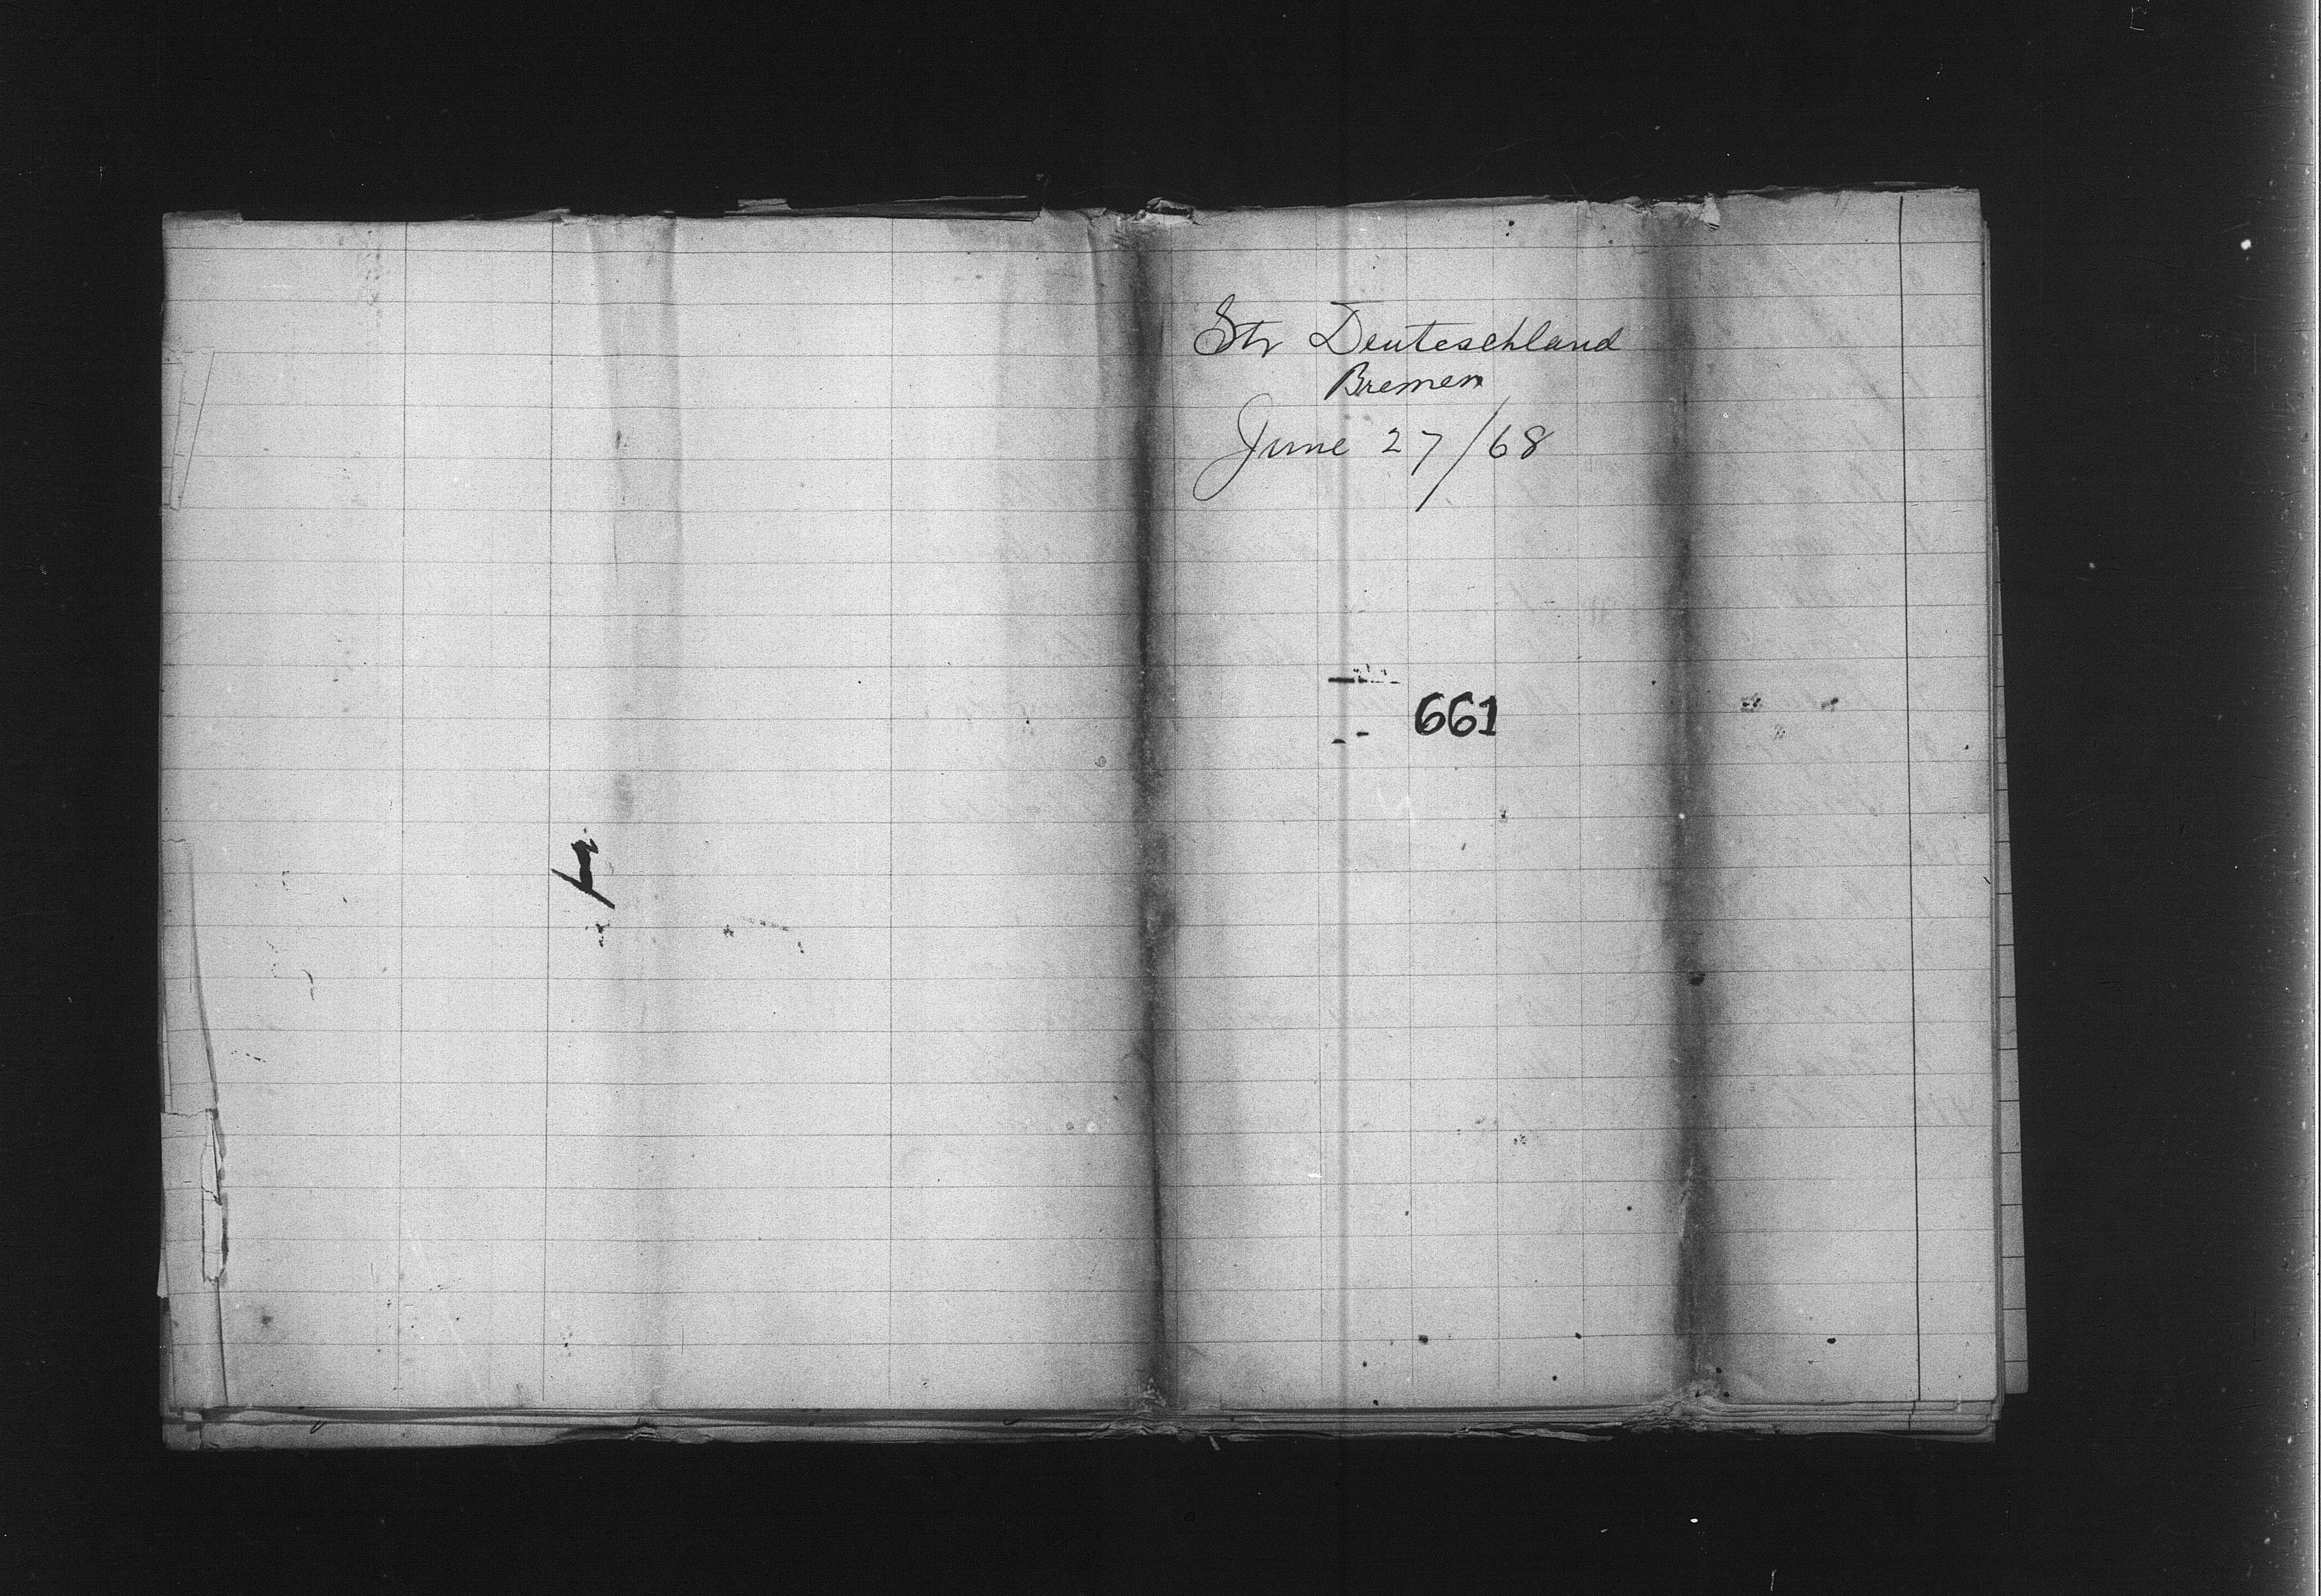 Str Deuteschland
Bremen
June 27/68
661